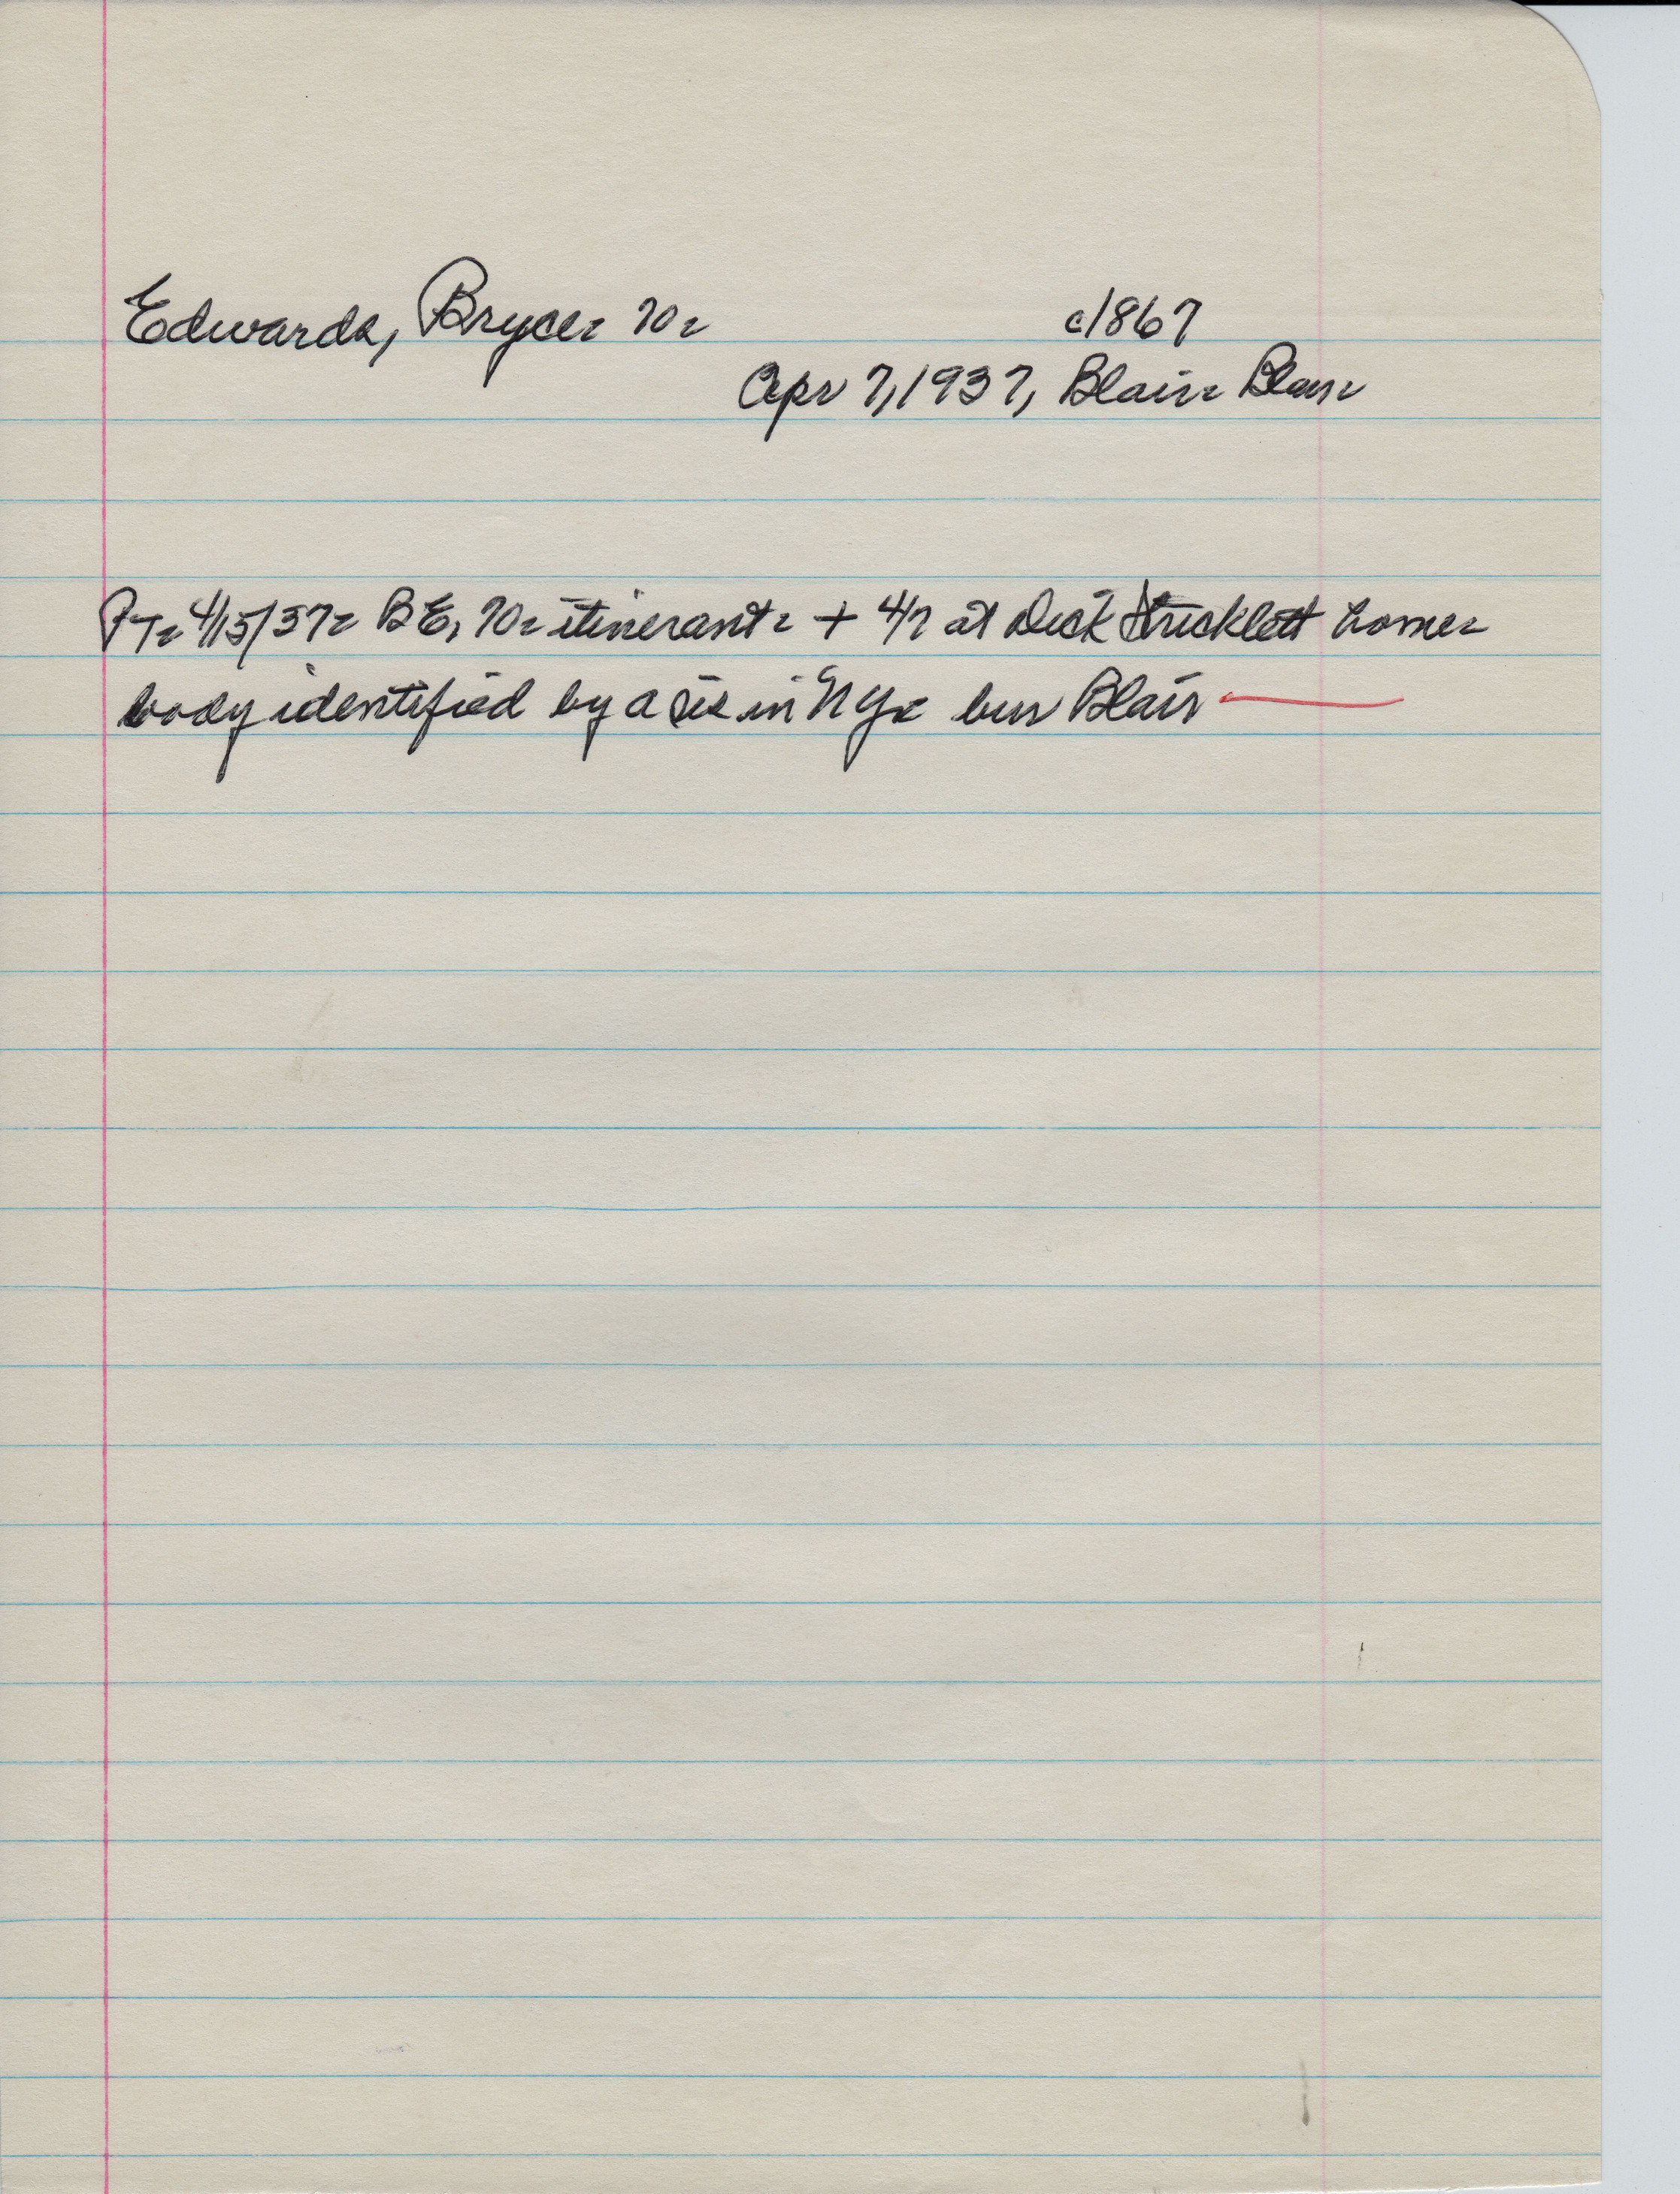 Edwards, Bryce - 70 - c1867
Apr 7, 1937, Blair - Blair
PT - 4/15/37 - BE, 70 - itinerant - + 4/7 at Dick Stricklett home -
body identified by a sis in NY - bur Blair